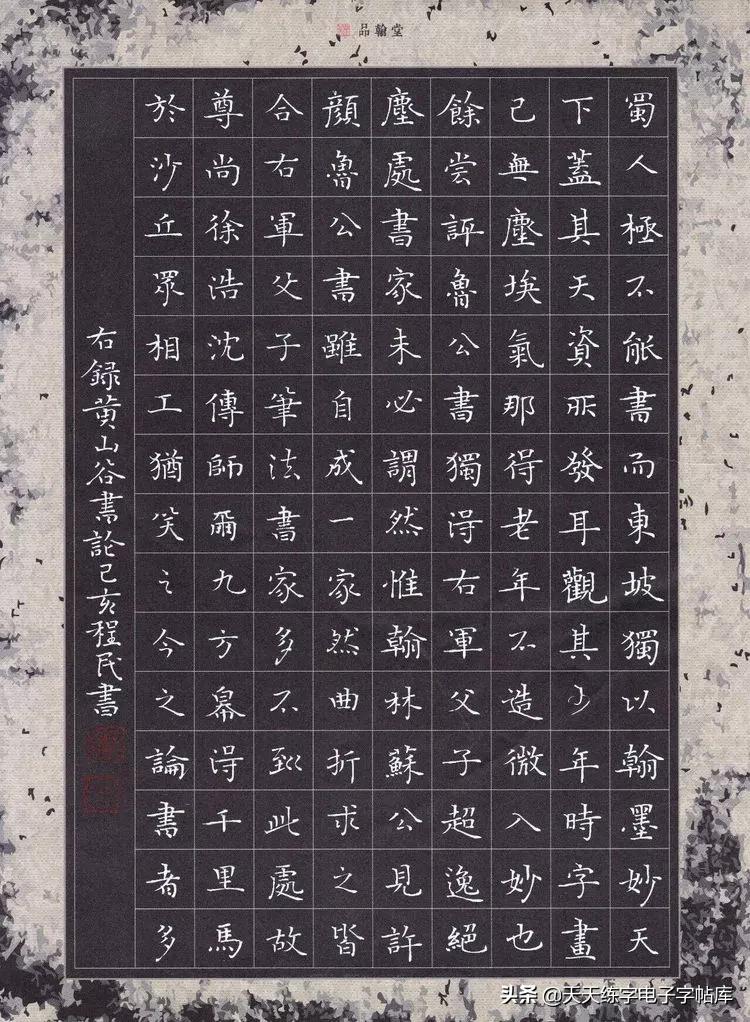 品翰堂
蜀人極不能書而東坡獨以翰墨妙天
下蓋其天資所發耳觀其少年時字畫
已無塵埃氣那得老年不造微入妙也
餘嘗評魯公書獨得右軍父子超逸絕
塵處書家未必謂然惟翰林蘇公見許
顏魯公書雖自成一家然曲折求之皆
合右軍父子筆法書家多不到此處故
尊尚徐浩沈傳師爾九方皋得千里馬
於沙丘眾相工猶笑之今之論書者多
右録黄山谷書論己亥程民書
头条 @天天练字电子字帖库